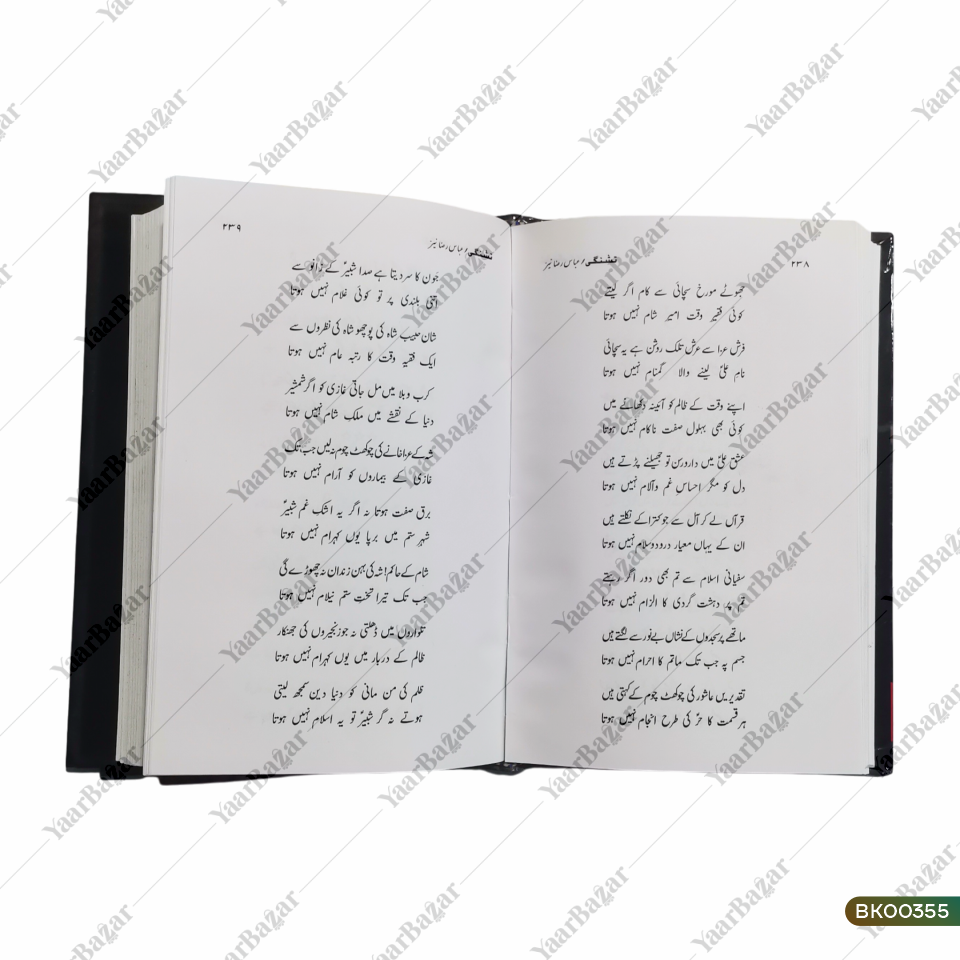 ۲۳۸
تشنگی / عباس رضا نیّر
جھوٹے مورخ سچائی سے کام اگر لیتے
کوئی فقیرِ وقت امیرِ شام نہیں ہوتا
فرشِ عزا سے عرش تلک روشن ہے یہ سچائی
نامِ علیؑ لینے والا گمنام نہیں ہوتا
اپنے وقت کے ظالم کو آئینہ دکھانے میں
کوئی بھی بہلول صفت ناکام نہیں ہوتا
عشقِ علیؑ میں دار و رسن تو جھیلنے پڑتے ہیں
دل کو مگر احساسِ غم و آلام نہیں ہوتا
قرآں لے کر آل سے جو کترا کے نکلتے ہیں
ان کے یہاں معیارِ درود و سلام نہیں ہوتا
سفیانی اسلام سے تم بھی دور اگر رہتے
تم پر دہشت گردی کا الزام نہیں ہوتا
ماتھے پر سجدوں کے نشاں بے نور سے لگتے ہیں
جسم پہ جب تک ماتم کا احرام نہیں ہوتا
تقدیریں عاشور کی چوکھٹ چوم کے کہتی ہیں
ہر قسمت کا حرؑ کی طرح انجام نہیں ہوتا
۲۳۹
تشنگی / عباس رضا نیّر
جون کا سر دیتا ہے صدا شبیرؑ کے زانو سے
اتنی بلندی پر تو کوئی غلام نہیں ہوتا
شانِ حبیبِ شاہ کی پوچھو شاہ کی نظروں سے
ایک فقیہِ وقت کا رتبہ عام نہیں ہوتا
کرب و بلا میں مل جاتی غازی کو اگر شمشیر
دنیا کے نقشے میں ملکِ شام نہیں ہوتا
شہ کے عزا خانے کی چوکھٹ چوم نہ لیں جب تک
غازیؑ کے بیماروں کو آرام نہیں ہوتا
برق صفت ہوتا نہ اگر یہ اشکِ غمِ شبیرؑ
شہرِ ستم میں برپا یوں کہرام نہیں ہوتا
شام کے حاکم! شہ کی بہن زندان نہ چھوڑے گی
جب تک تیرا تختِ ستم نیلام نہیں ہوتا
تلواروں میں ڈھلتی نہ جو زنجیروں کی جھنکار
ظالم کے دربار میں یوں کہرام نہیں ہوتا
ظلم کی من مانی کو دنیا دین سمجھ لیتی
ہوتے نہ گر شبیرؑ تو یہ اسلام نہیں ہوتا
YaarBazar
BK00355